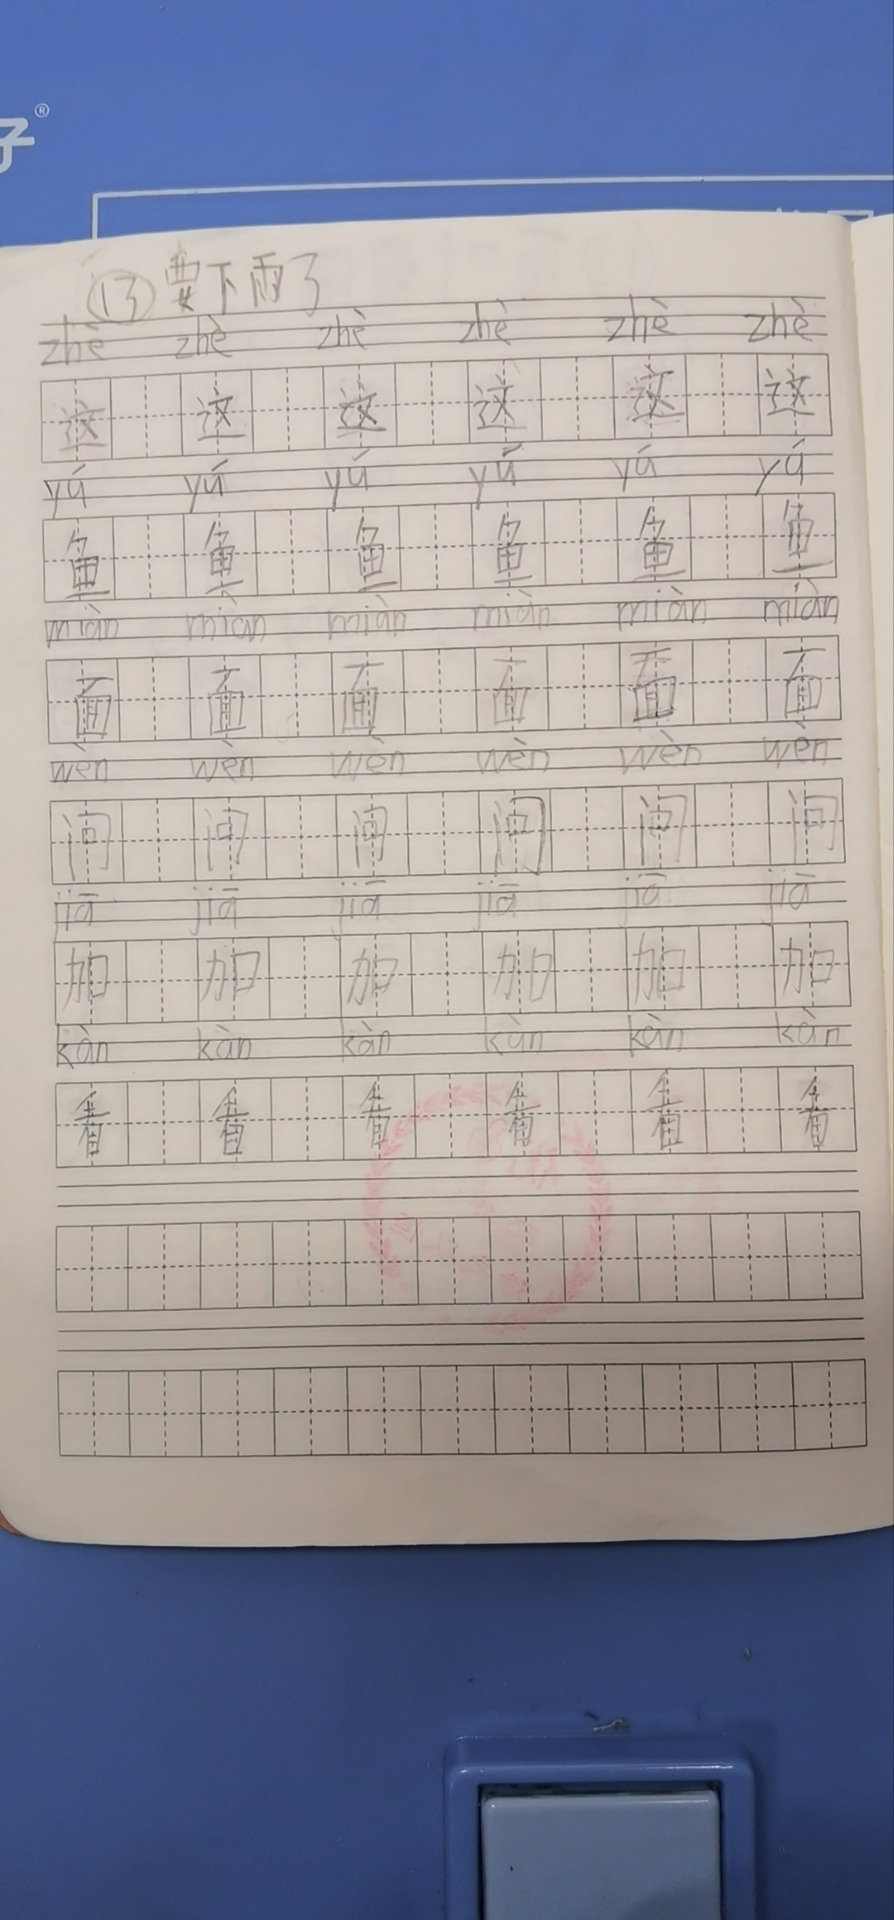 子®
⑬要下雨了
zhè zhè zhè zhè zhè zhè
这 这 这 这 这 这
yú yú yú yú yú yú
鱼 鱼 鱼 鱼 鱼 鱼
miàn miàn miàn miàn miàn miàn
面 面 面 面 面 面
wèn wèn wèn wèn wèn wèn
问 问 问 问 问 问
jiā jiā jiā jiā jiā jiā
加 加 加 加 加 加
kàn kàn kàn kàn kàn kàn
看 看 看 看 看 看